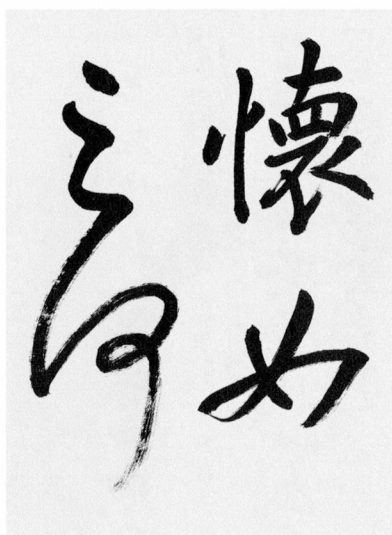 懷如
之何